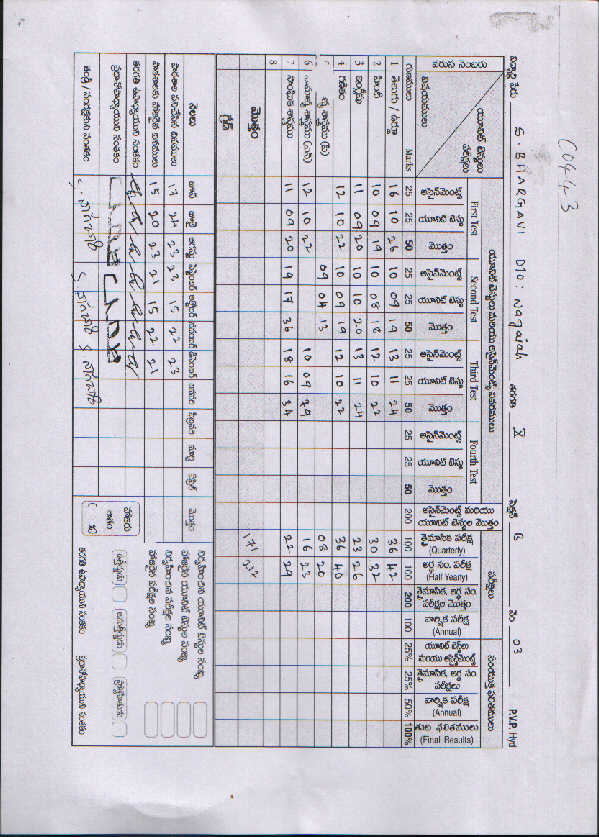 C0443
విద్యార్థి పేరు S. BHARGAVI D/o: Nagaiah తరగతి X సెక్షన్ B నం 03 P.V.P. Hyd
వరుస నంబరు
యూనిట్ టెస్టులు పరీక్షలు
విషయములు
యూనిట్ టెస్టులు మరియు అసైన్‌మెంట్స్ వివరములు పరీక్షలు సంయుక్త ఫలితములు
First Test Second Test Third Test Fourth Test
అసైన్‌మెంట్స్ యూనిట్ టెస్టు మొత్తం అసైన్‌మెంట్స్ యూనిట్ టెస్టు మొత్తం అసైన్‌మెంట్స్ యూనిట్ టెస్టు మొత్తం అసైన్‌మెంట్స్ యూనిట్ టెస్టు మొత్తం
అసైన్‌మెంట్స్ మరియు యూనిట్ టెస్టుల మొత్తం
త్రైమాసిక పరీక్ష (Quarterly)
అర్ధ సం. పరీక్ష (Half Yearly)
త్రైమాసిక, అర్ధ సం. పరీక్షల మొత్తం
వార్షిక పరీక్ష (Annual)
యూనిట్ టెస్టులు మరియు అసైన్‌మెంట్స్
త్రైమాసిక, అర్ధ సం. పరీక్షలు
వార్షిక పరీక్ష (Annual)
తుది ఫలితములు (Final Results)
గుణములు Marks 25 25 50 25 25 50 25 25 50 25 25 50 200 100 100 200 100 25% 25% 50% 100%
1 తెలుగు / ఉర్దూ 16 10 26 10 09 19 13 11 24 36 42
2 హిందీ 10 09 19 10 08 18 12 10 22 30 32
3 ఇంగ్లీషు 11 09 20 10 10 20 13 11 24 23 26
4 గణితం 12 10 22 10 09 19 12 10 22 36 40
5 09 04 13 08 20
6 12 10 22 10 09 16 23
7 సాంఘిక శాస్త్రము 11 09 20 19 17 36 18 16 34 22 29
8
మొత్తం 171 212
గ్రేడ్
నెలలు జూన్ జూలై ఆగష్టు సెప్టెంబర్ అక్టోబర్ నవంబర్ డిసెంబర్ జనవరి ఫిబ్రవరి మార్చి ఏప్రిల్ మొత్తం
పాఠశాల పనిచేసిన దినములు 17 24 23 22 15 22 23
హాజరైన దినములు 15 20 23 21 15 22 21
హాజరు శాతం
తరగతి ఉపాధ్యాయుని సంతకం
ప్రధానోపాధ్యాయుని సంతకం
తండ్రి / సంరక్షకుని సంతకం
నిర్వహించిన యూనిట్ టెస్టుల సంఖ్య
హాజరైన యూనిట్ టెస్టుల సంఖ్య
నిర్వహించిన పరీక్షల సంఖ్య
హాజరైన పరీక్షల సంఖ్య
తరగతి ఉపాధ్యాయుని సంతకం ప్రధానోపాధ్యాయుని సంతకం